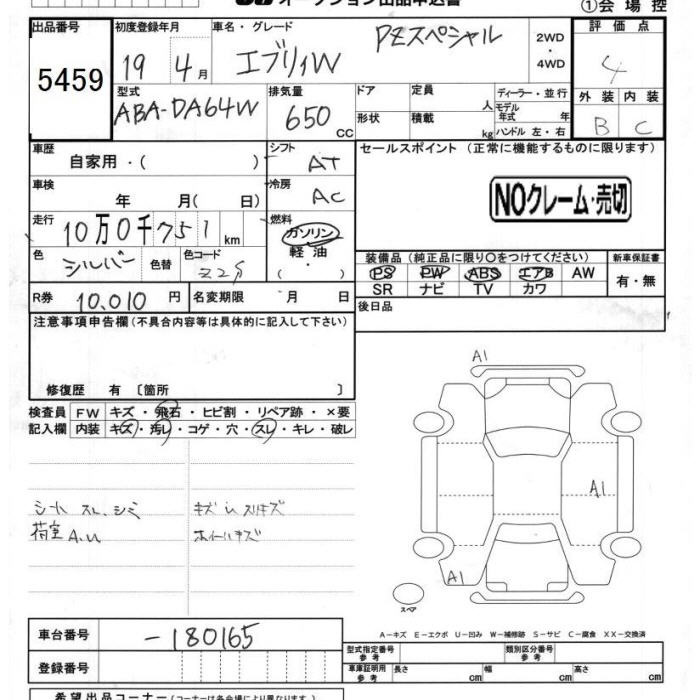 オークション出品申込書
①会場控
出品番号 初度登録年月 車名・グレード 評価点
5459 19 4月 エブリィW PZスペシャル 2WD・4WD 4
型式 排気量 ドア 定員 人 ディーラー・並行 外装 内装
ABA-DA64W 650 CC 形状 積載 kg モデル年式 年 ハンドル 左・右 B C
車歴 シフト セールスポイント (正常に機能するものに限ります)
自家用・( ) AT
車検 冷房
年 月( 日) AC NOクレーム・売切
走行 燃料
10万0千751 km ガソリン
色 シルバー 色替 色コード Z2S 軽油 ・( ) 装備品(純正品に限り○をつけてください) 新車保証書
PS PW ABS エアB AW 有・無
R券 10,010円 名変期限 月 日 SR ナビ TV カワ
注意事項申告欄(不具合内容等は具体的に記入して下さい) 後日品
修復歴 有 〔箇所 〕
検査員 FW キズ・飛石・ヒビ割・リペア跡・×要
記入欄 内装 キズ・汚レ・コゲ・穴・スレ・キレ・破レ
A1
A1
シート スレ、シミ キズ U スリキズ
荷室 A.U ホイールキズ
A1
スペア
A-キズ E-エクボ U-凹み W-補修跡 S-サビ C-腐食 XX-交換済
車台番号 -180165
型式指定番号 参考 類別区分番号 参考
登録番号 車庫証明用 参考 長さ cm 幅 cm 高さ cm
希望出品コーナー(コーナーは各会場により異なります)